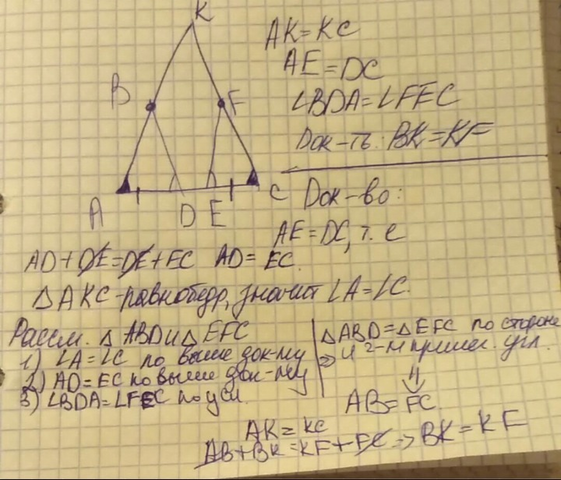 K
B
F
A
D
E
C
AK = KC
AE = DC
∠BDA = ∠FEC
Док-ть: BK = KF
Док-во:
AE = DC, т. е
AD + DE = DE + EC AD = EC.
△AKC - равнобедр, значит ∠A = ∠C.
Рассм. △ABD и △EFC
1) ∠A = ∠C по выше док-му
2) AD = EC по выше док-му
3) ∠BDA = ∠FEC по усл.
△ABD = △EFC по стороне
⇒ и 2-м прилеж. угл.
⇓
AB = FC.
AK = KC
AB + BK = KF + FC ⇒ BK = KF